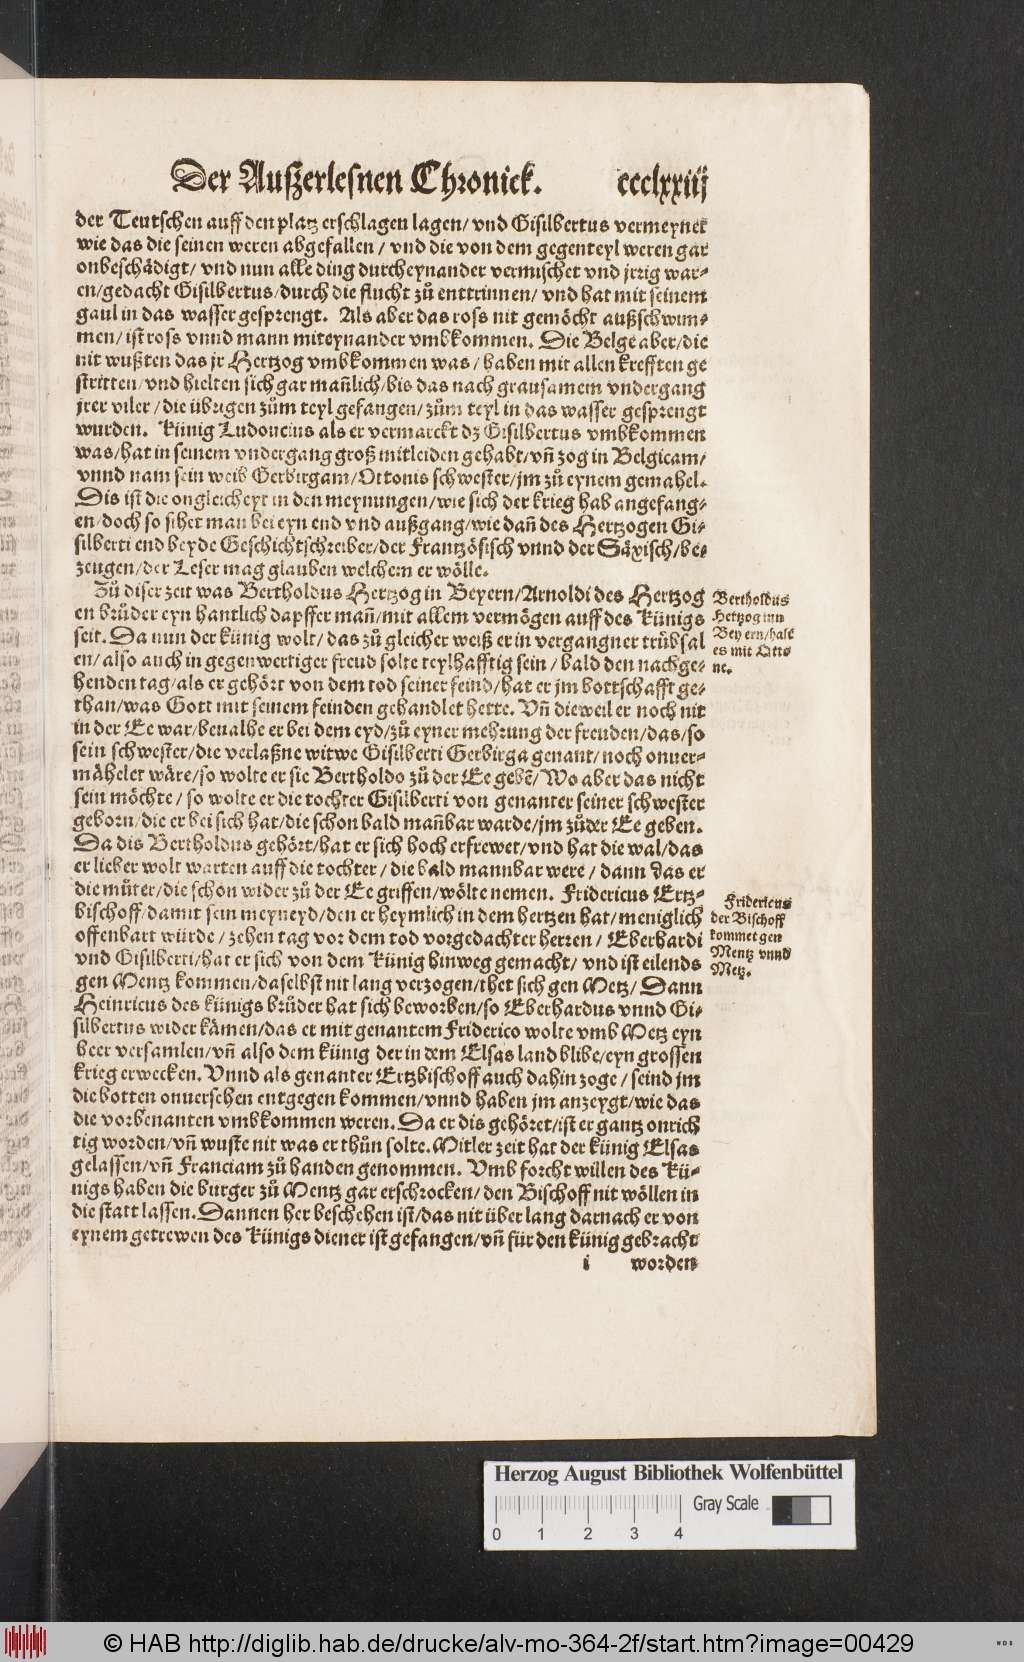 Der Außerlesnen Chronick. cccclxxiij
der Teutschen auff den platz erschlagen lagen / vnd Gisilbertus vermeynet
wie das die seinen weren abgefallen / vnd die von dem gegenteyl weren gar
onbeschädigt / vnd nun alle ding durcheynander vermischet vnd jrrig war-
en / gedacht Gisilbertus / durch die flucht zů enttrinnen / vnd hat mit seinem
gaul in das wasser gesprengt. Als aber das ross nit gemöcht außschwim-
men / ist ross vnnd mann miteynander vmbkommen. Die Belge aber / die
nit wußten das jr Hertzog vmbkommen was / haben mit allen krefften ge
stritten / vnd hielten sich gar mañlich / bis das nach grausamem vndergang
jrer viler / die übrigen zům teyl gefangen / zům teyl in das wasser gesprengt
wurden. Künig Ludouicus als er vermarckt dz Gisilbertus vmbkommen
was / hat in seinem vndergang groß mitleiden gehabt / vñ zog in Belgicam /
vnnd nam sein weib Gerbirgam / Ottonis schwester / jm zů eynem gemahel.
Dis ist die ongleicheyt in den meynungen / wie sich der krieg hab angefang-
en / doch so sihet man bei eyn end vnd außgang / wie dañ des Hertzogen Gi-
silberti end beyde Geschichtschreiber / der Frantzösisch vnnd der Säxisch / be-
zeugen / der Leser mag glauben welchem er wölle.
Zů diser zeit was Bertholdus Hertzog in Beyern / Arnoldi des Hertzog
en brůder eyn hantlich dapffer mañ / mit allem vermögen auff des Künigs
seit. Da nun der künig wolt / das zů gleicher weiß er in vergangner trübsal
en / also auch in gegenwertiger freud solte teylhafftig sein / bald den nachge-
henden tag / als er gehört von dem tod seiner feind / hat er jm bottschafft ge-
than / was Gott mit seinem feinden gehandlet hette. Vñ dieweil er noch nit
in der Ee war / beualhe er bei dem eyd / zů eyner mehrung der freuden / das / so
sein schwester / die verlaßne witwe Gisilberti Gerbirga genant / noch onuer-
mähelet wäre / so wolte er sie Bertholdo zů der Ee gebẽ / Wo aber das nicht
sein möchte / so wolte er die tochter Gisilberti von genanter seiner schwester
geborn / die er bei sich hat / die schon bald mañbar warde / jm zů der Ee geben.
Da dis Bertholdus gehört / hat er sich hoch erfrewet / vnd hat die wal / das
er lieber wolt warten auff die tochter / die bald mannbar were / dann das er
die můter / die schon wider zů der Ee griffen / wölte nemen. Fridericus Ertz-
bischoff / damit sein meyneyd / den er heymlich in dem hertzen hat / meniglich
offenbart würde / zehen tag vor dem tod vorgedachter herren / Eberhardi
vnd Gisilberti / hat er sich von dem Künig hinweg gemacht / vnd ist eilends
gen Mentz kommen / daselbst nit lang verzogen / thet sich gen Metz / Dann
Heinricus des künigs brůder hat sich beworben / so Eberhardus vnnd Gi-
silbertus wider kämen / das er mit genantem Friderico wolte vmb Metz eyn
heer versamlen / vñ also dem künig der in dem Elsas land blibe / eyn grossen
krieg erwecken. Vnnd als genanter Ertzbischoff auch dahin zoge / seind jm
die botten onuersehen entgegen kommen / vnnd haben jm anzeygt / wie das
die vorbenanten vmbkommen weren. Da er dis gehöret / ist er gantz onrich
tig worden / vñ wuste nit was er thůn solte. Mitler zeit hat der künig Elsas
gelassen / vñ Franciam zů handen genommen. Vmb forcht willen des Kü-
nigs haben die burger zů Mentz gar erschrocken / den Bischoff nit wöllen in
die statt lassen. Dannen her beschehen ist / das nit über lang darnach er von
eynem getrewen des Künigs diener ist gefangen / vñ für den künig gebracht
i worden
Bertholdus
Hertzog inn
Beyern / halt
es mit Otto
ne.
Fridericus
der Bischoff
kommet gen
Mentz vnnd
Metz.
Herzog August Bibliothek Wolfenbüttel
Gray Scale
0 1 2 3 4
© HAB http://diglib.hab.de/drucke/alv-mo-364-2f/start.htm?image=00429